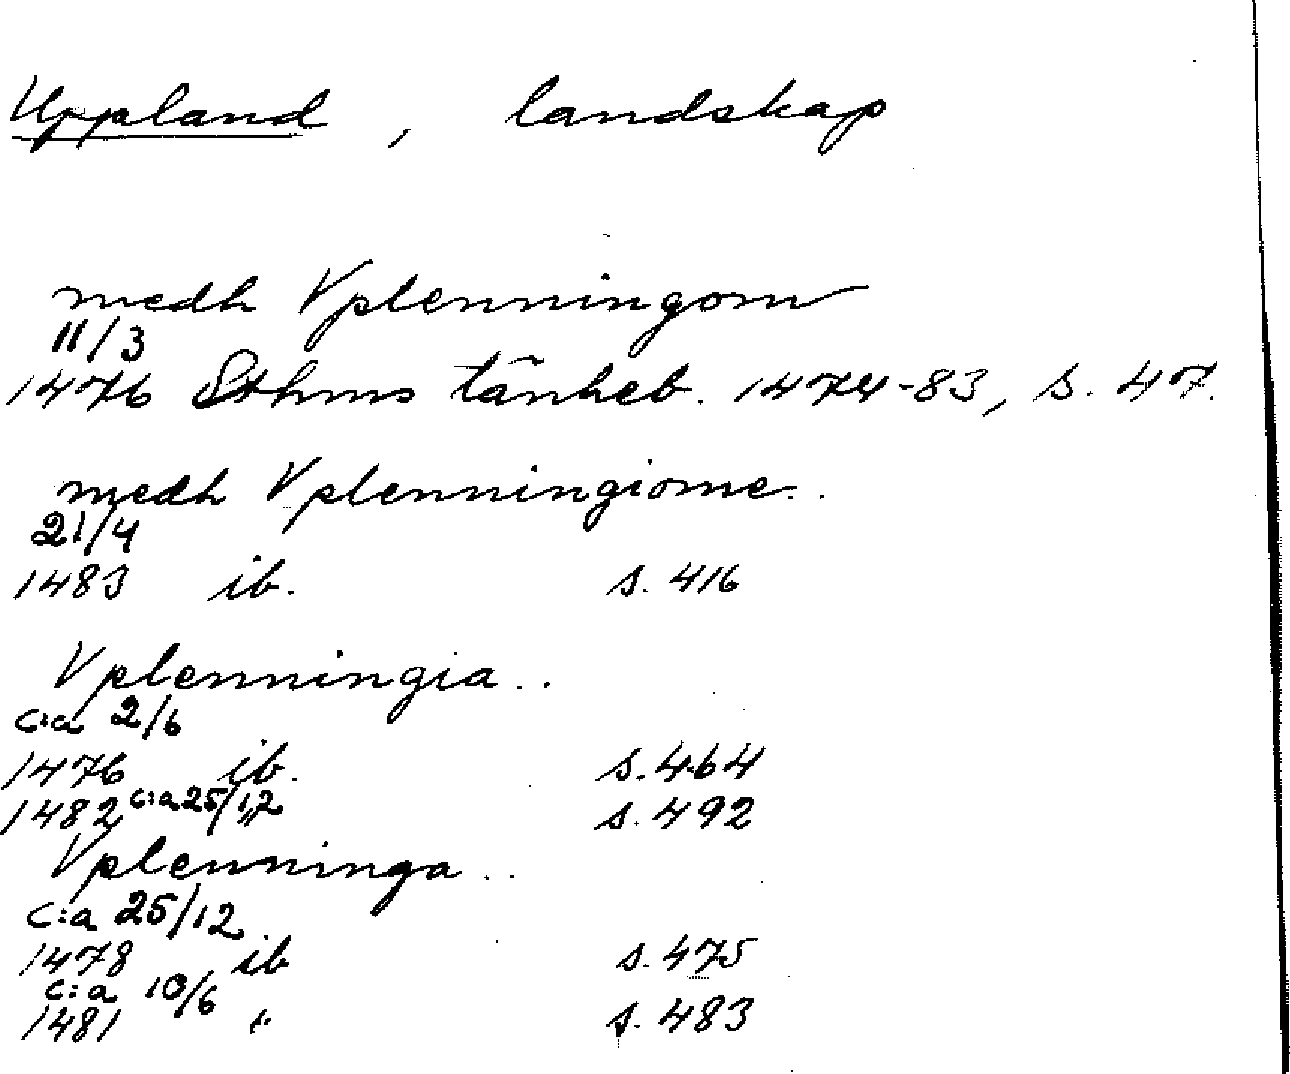 Uppland, landskap
medh Vplenningom
11/3
1476 Sthms tänkeb. 1474-83, s. 47.
medh Vplenningiome..
21/4
1483 ib. s. 416
Vplenningia..
c:a 2/6
1476 ib. s. 464
1482 c:a 25/12 " s. 492
Vplenninga..
c:a 25/12
1478 ib s. 475
c:a 10/6
1481 " s. 483